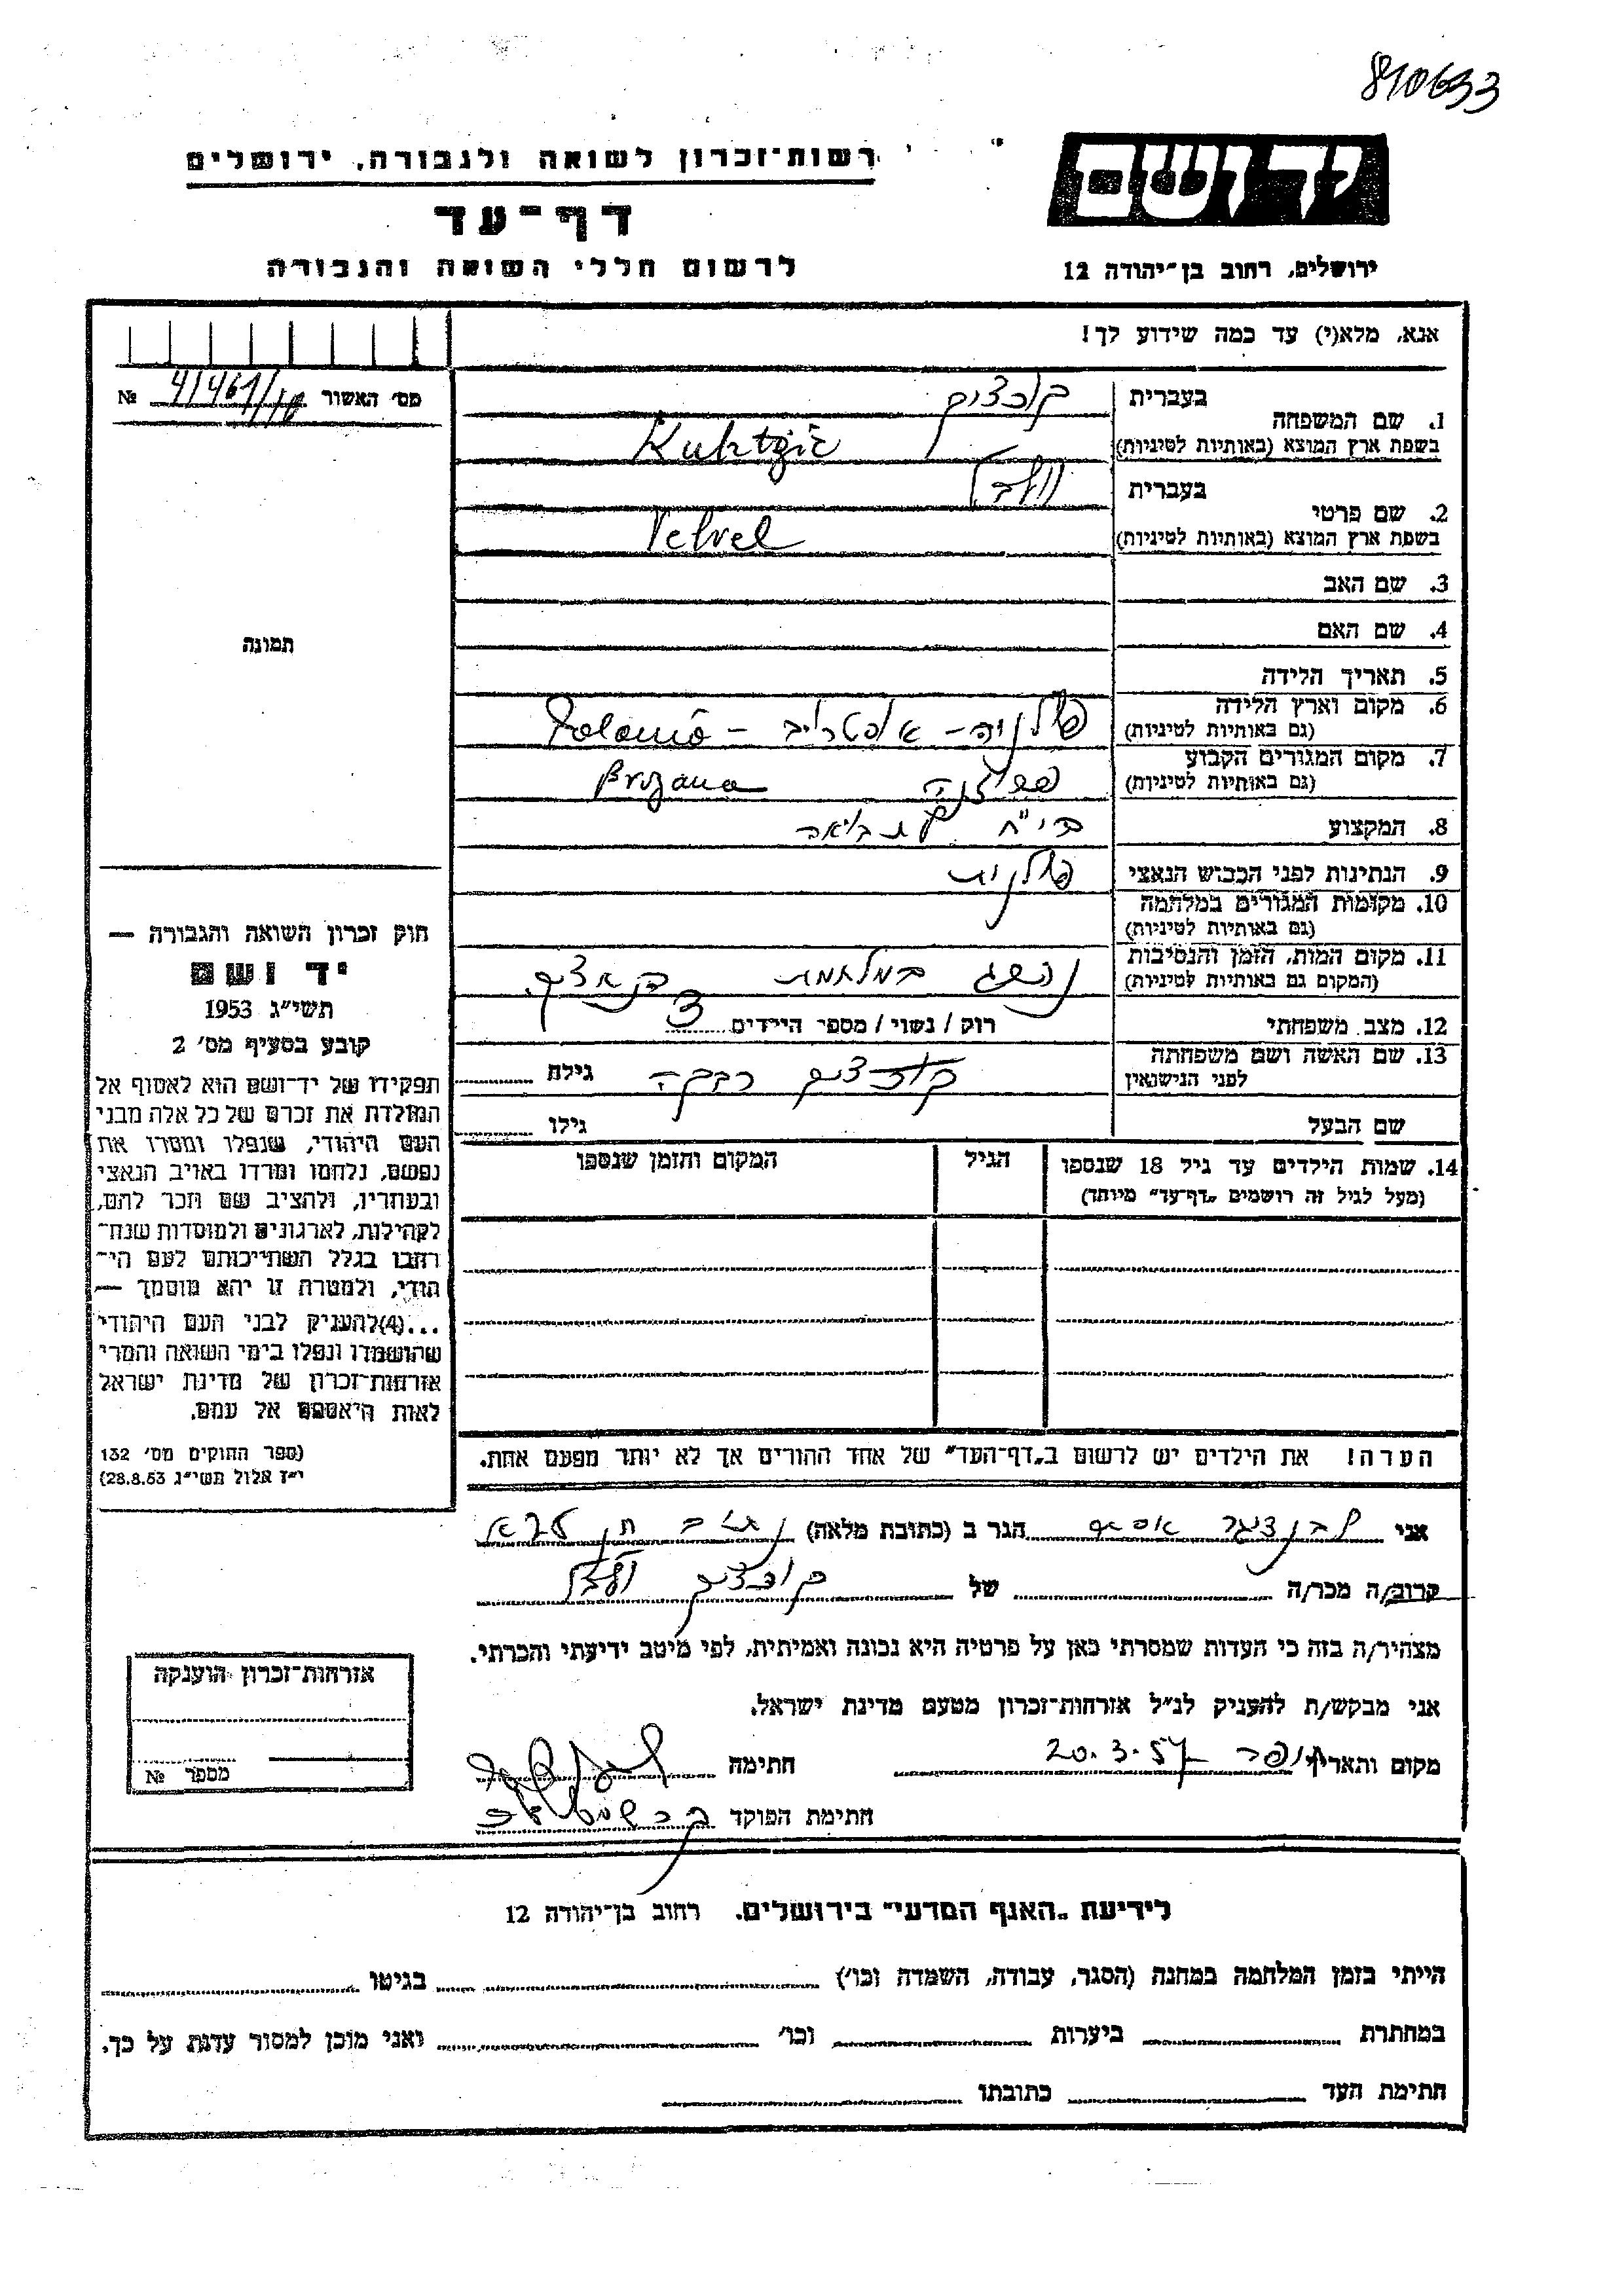 810633
יד ושם
רשות־זכרון לשואה ולגבורה, ירושלים
דף־עד
לרשום חללי השואה והגבורה
ירושלים, רחוב בן־יהודה 12
אנא, מלא(י) עד כמה שידוע לך!
מס׳ האשור №
1. שם המשפחה
בעברית קוכציק
בשפת ארץ המוצא (באותיות לטיניות) Kuhtzic
2. שם פרטי
בעברית ולבל
בשפת ארץ המוצא (באותיות לטיניות) Velvel
3. שם האב
4. שם האם
5. תאריך הלידה
6. מקום וארץ הלידה
(גם באותיות לטיניות) פולניה –
7. מקום המגורים הקבוע
(גם באותיות לטיניות) Brozana
8. המקצוע
9. הנתינות לפני הכבוש הנאצי פולנית
10. מקומות המגורים במלחמה
(גם באותיות לטיניות)
11. מקום המות, הזמן והנסיבות
(המקום גם באותיות לטיניות) נהרג במלחמת
12. מצב משפחתי רווק / נשוי / מספר הילדים 3
13. שם האשה ושם משפחתה
לפני הנישואין קוכציק רבקה גילה
שם הבעל גילו
14. שמות הילדים עד גיל 18 שנספו הגיל המקום והזמן שנספו
(מעל לגיל זה רושמים „דף־עד” מיוחד)
הערה! את הילדים יש לרשום ב„דף־העד” של אחד ההורים אך לא יותר מפעם אחת.
תמונה
חוק זכרון השואה והגבורה —
יד ושם
תשי״ג 1953
קובע בסעיף מס׳ 2
תפקידו של יד־ושם הוא לאסוף אל
המולדת את זכרם של כל אלה מבני
העם היהודי, שנפלו ומסרו את
נפשם, נלחמו ומרדו באויב הנאצי
ובעוזריו, ולהציב שם וזכר להם,
לקהילות, לארגונים ולמוסדות שנח־
רחבו בגלל השתייכותם לעם הי־
הודי, ולמטרה זו יהא מוסמך —
...(4)להעניק לבני העם היהודי
שהושמדו ונפלו בימי השואה והמרי
אזרחות־זכרון של מדינת ישראל
לאות היאספם אל עמם.
(ספר החוקים מס׳ 132
י״ז אלול תשי״ג 28.8.53)
אני הגר ב (כתובת מלאה)
קרוב/ה מכר/ה של קוכציק ולבל
מצהיר/ה בזה כי העדות שמסרתי כאן על פרטיה היא נכונה ואמיתית, לפי מיטב ידיעתי והכרתי.
אני מבקש/ת להעניק לנ״ל אזרחות־זכרון מטעם מדינת ישראל.
מקום ותאריך 20.3.57 חתימה
חתימת הפוקד
אזרחות־זכרון הוענקה
מספר №
לידיעת „האגף המדעי” בירושלים. רחוב בן־יהודה 12
הייתי בזמן המלחמה במחנה (הסגר, עבודה, השמדה וכו׳) בגיטו
במחתרת ביערות וכו׳ ואני מוכן למסור עדות על כך.
חתימת העד כתובתו